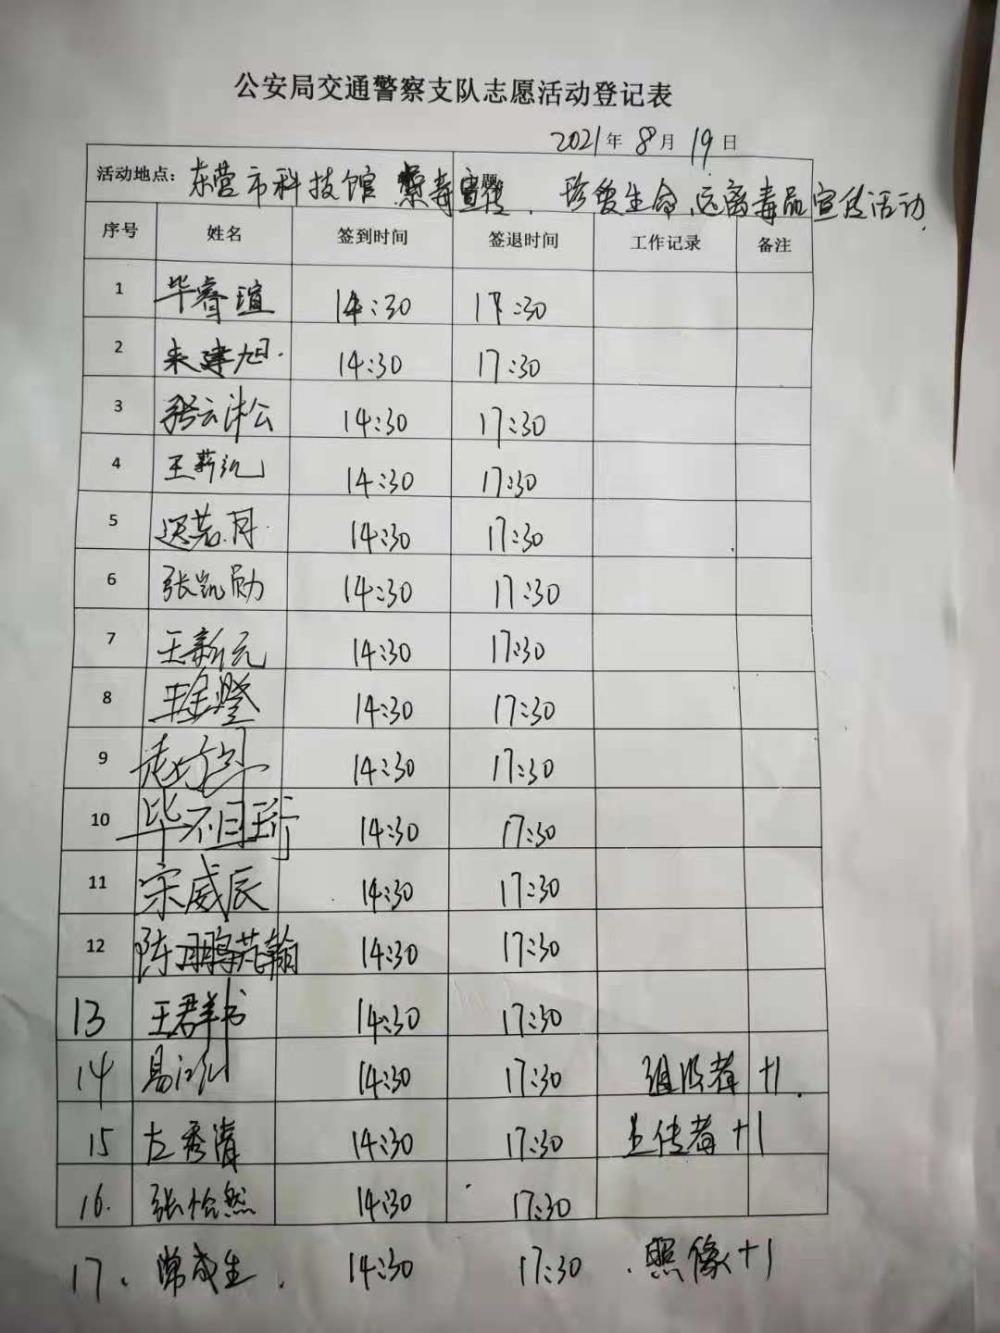 公安局交通警察支队志愿活动登记表
2021年8月19日
活动地点: 东营市科技馆 禁毒宣传、珍爱生命、远离毒品宣传活动
序号 姓名 签到时间 签退时间 工作记录 备注
1 毕睿瑄 14:30 17:30
2 建旭 14:30 17:30
3 14:30 17:30
4 王薪沅 14:30 17:30
5 迟若月 14:30 17:30
6 张凯勋 14:30 17:30
7 王新元 14:30 17:30
8 14:30 17:30
9 14:30 17:30
10 14:30 17:30
11 宋威辰 14:30 17:30
12 陈 14:30 17:30
13 王君 书 14:30 17:30
14 14:30 17:30 组织者+1
15 左秀清 14:30 17:30 宣传者+1
16. 张怡然 14:30 17:30
17、常成生 14:30 17:30 照像+1